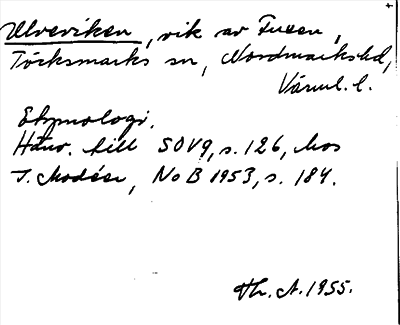 Ulveviken, vik av Foxen,
Töcksmarks sn, Nordmarks hd,
Värml. l.
Etymologi.
Hänv. till SOV 9, s. 126, hos
I. Modéer, NoB 1953, s. 184.
Th. A. 1955.